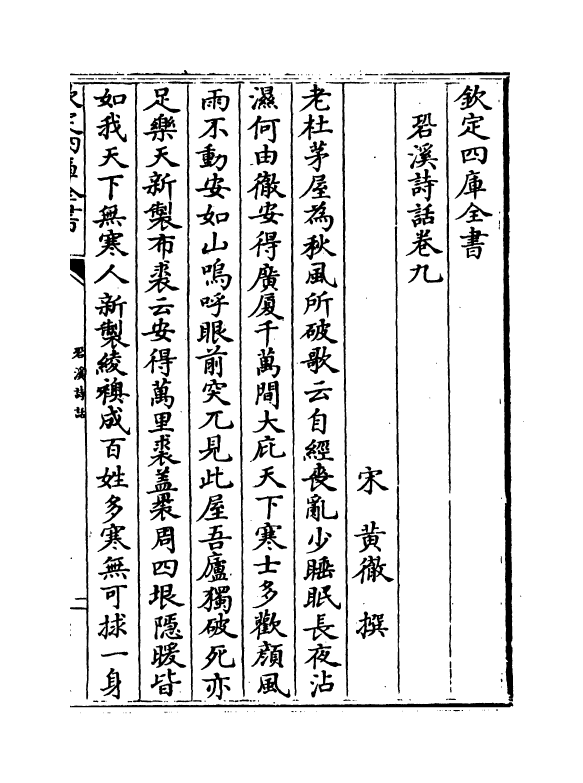 欽定四庫全書
䂬溪詩話卷九
宋 黄徹 撰
老杜茅屋為秋風所破歌云自經喪亂少睡眠長夜沾
濕何由徹安得廣厦千萬間大庇天下寒士多歡顔風
雨不動安如山嗚呼眼前突兀見此屋吾廬獨破死亦
足樂天新製布裘云安得萬里裘盖褁周四垠隱暖皆
如我天下無寒人新製綾襖成百姓多寒無可捄一身
欽定四庫全書
䂬溪詩話